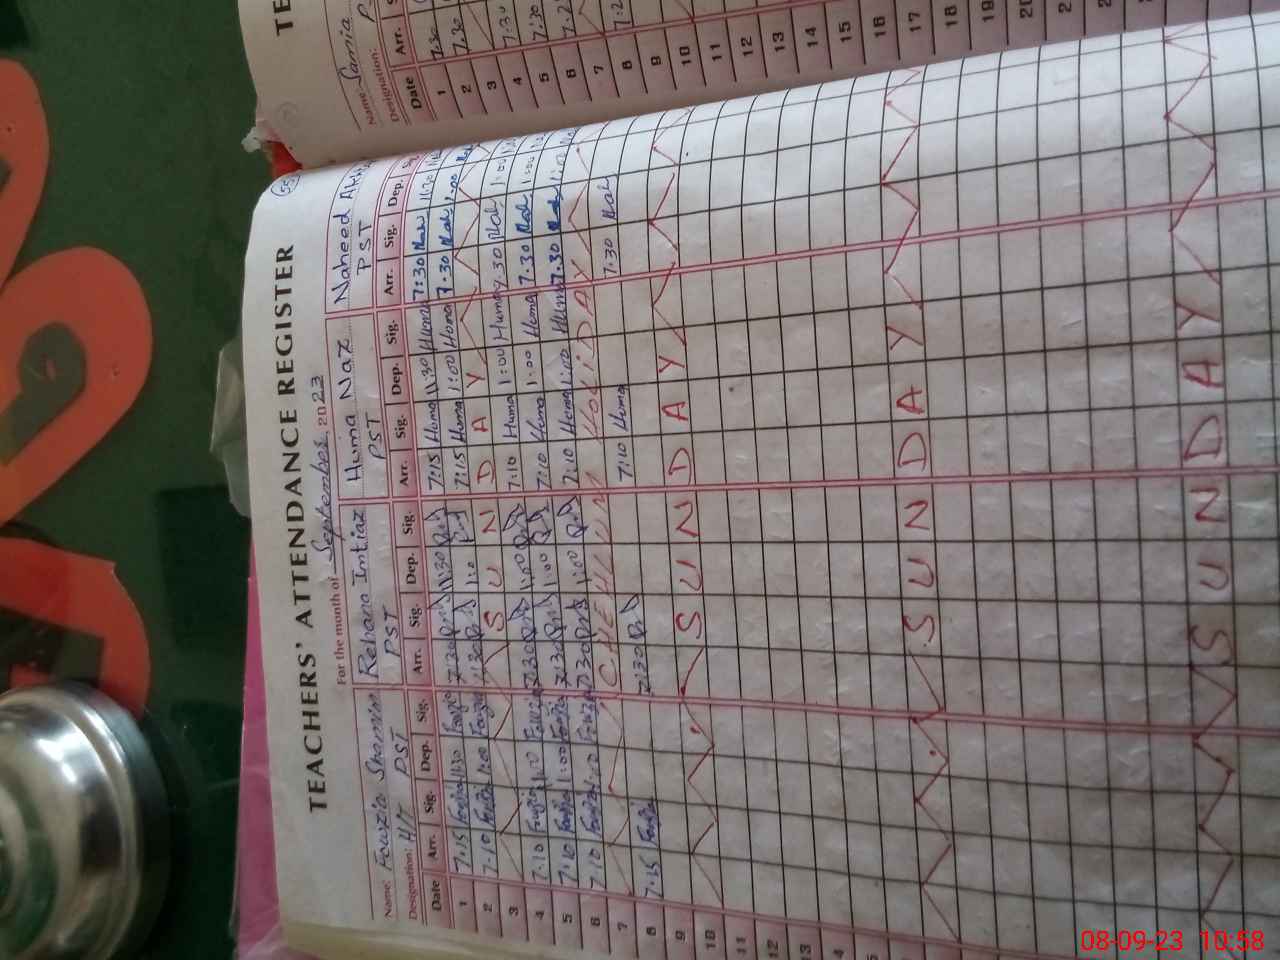 TEACHERS' ATTENDANCE REGISTER
For the month of September 2023
Name: Fouzia Shamim Rehana Imtiaz Huma Naz Naheed
Designation: H/T PST PST PST PST
Date Arr. Sig. Dep. Sig. Arr. Sig. Dep. Sig. Arr. Sig. Dep. Sig. Arr. Sig. Dep.
1 7.15 Fouzia 11:30 Fouzia 7:30 11:30 7:15 Huma 11:30 Huma 7:30 Nah 11:30
2 7.10 Fouzia 1:00 Fouzia 7:30 1:0 7:15 Huma 1:00 Huma 7:30 Nah 1:00
3 SUNDAY
4 7.10 Fouzia 1:0 Fouzia 7:30 1:00 7:10 Huma 1:00 Huma 7.30 Nah 1:00
5 7.10 Fouzia 1:00 Fouzia 7:30 1:00 7:10 Huma 1:00 Huma 7.30 Nah 1:00
6 7.10 Fouzia 1:00 Fouzia 7:30 1:00 7:10 Huma 1:0 Huma 7.30 Nah 1:0
7 CHEHLUM HOLIDAY
8 7.15 Fouzia 7:30 7:10 Huma 7.30 Nah
9
10 SUNDAY
11
12
13
4
SUNDAY
SUNDAY
TE
Name: Samia
Designation: P
Date Arr.
1 7.30
2 7.30
3
4 7.30
5 7.30
6 7.2
7
8 7.2
9
10
11
12
13
14
15
16
17
18
19
20
08-09-23 10:58